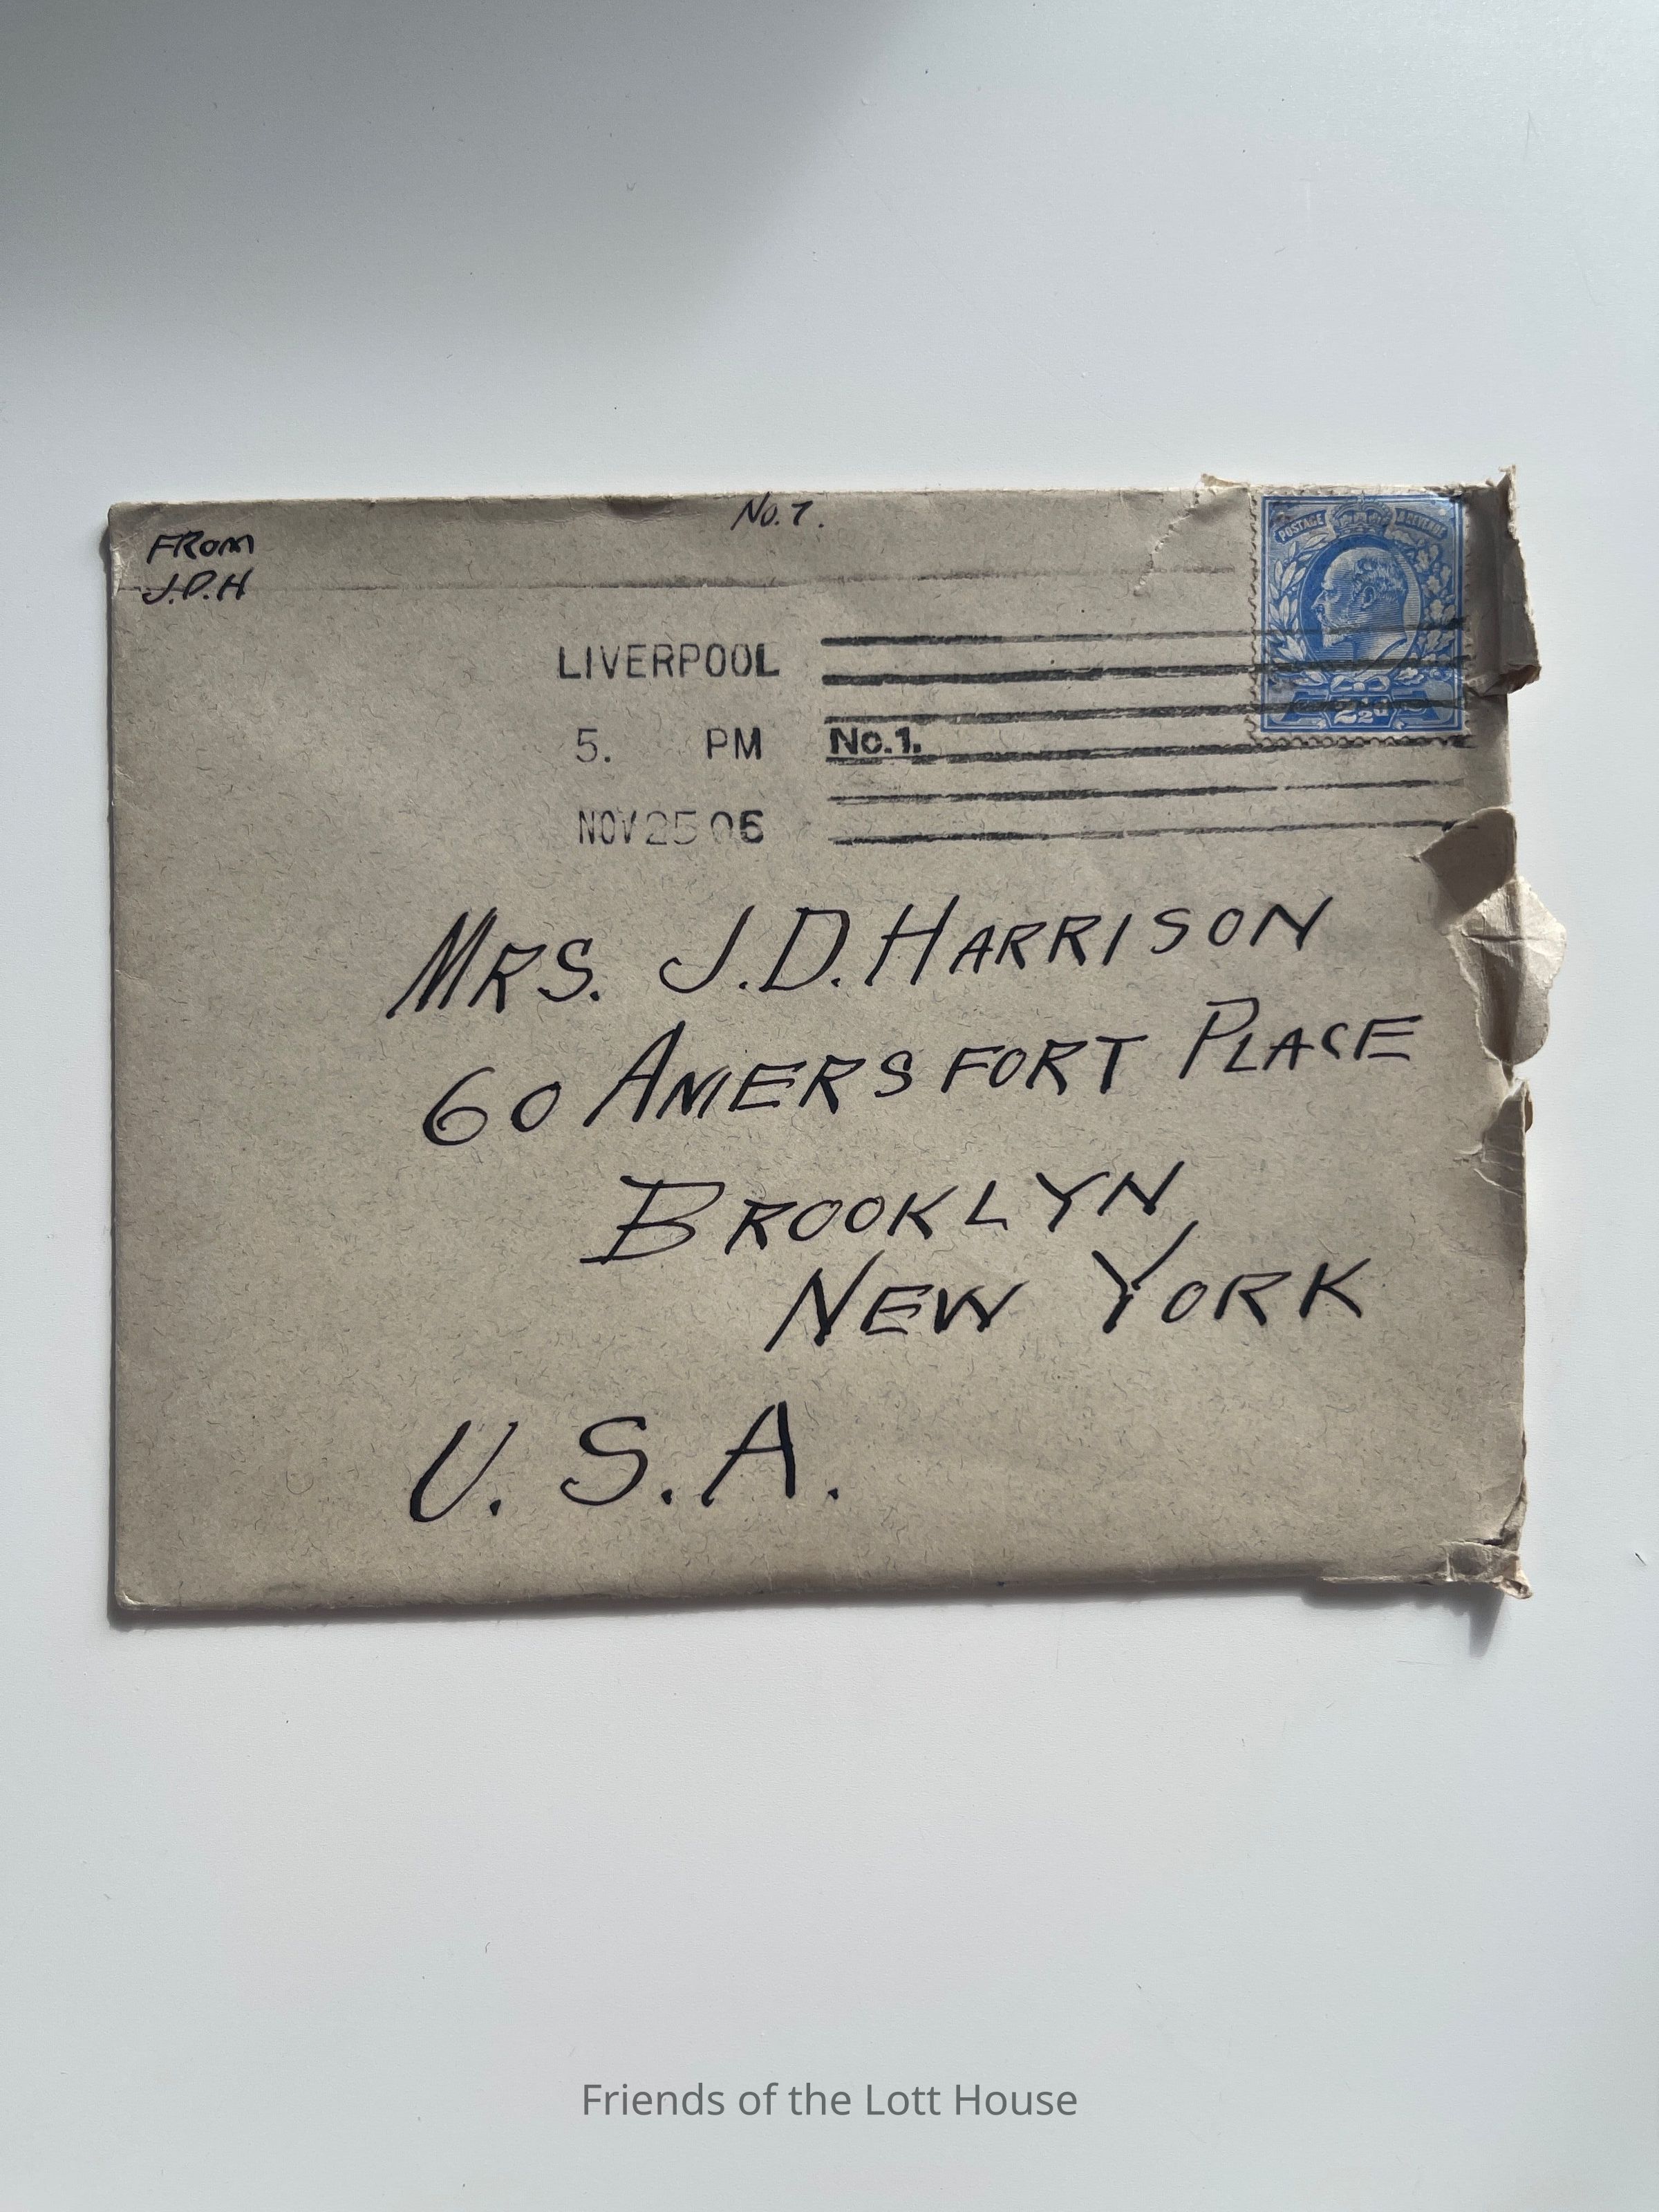 No. 7.
FROM
J.D.H
POSTAGE & REVENUE
2½d
LIVERPOOL
5. PM No.1.
NOV 25 06
MRS. J.D. HARRISON
60 AMERSFORT PLACE
BROOKLYN,
NEW YORK
U.S.A.
Friends of the Lott House